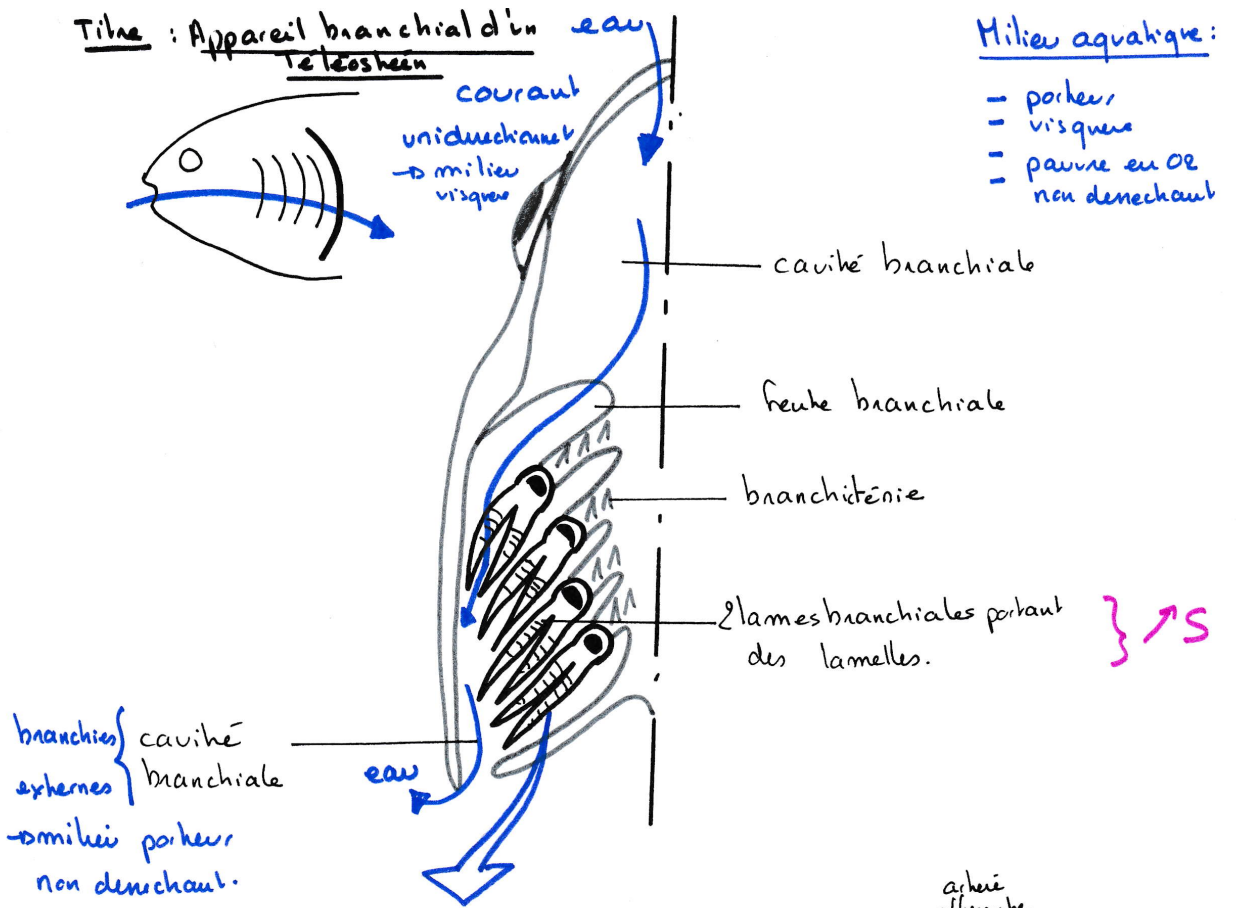 Titre : Appareil branchial d'un
Téléostéen
eau
courant
unidirectionnel
→ milieu
visqueux
Milieu aquatique :
- porteur
- visqueux
- pauvre en O2
- non desséchant
cavité branchiale
fente branchiale
branchicténie
2 lames branchiales portant
des lamelles.
} ↗ S
branchies { cavité
externes branchiale
→ milieu porteur
non desséchant.
eau
artère